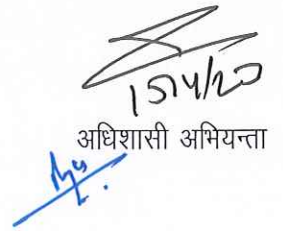 15/4/20
अधिशासी अभियन्ता